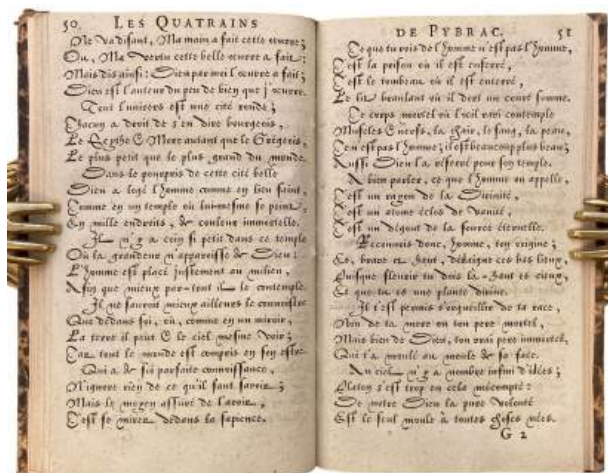 50. LES QUATRAINS
Ne va disant, Ma main a fait cette œuvre;
Ou, Ma vertu cette belle œuvre a fait:
Mais dis ainsi: Dieu par moi l'œuvre a fait;
Dieu est l'auteur du peu de bien que j'œuvre.
Tout l'univers est une cité ronde;
Chacun a droit de s'en dire bourgeois,
Le Scythe & More autant que le Grégeois,
Le plus petit que le plus grand du monde.
Dans le pourpris de cette cité belle
Dieu a logé l'homme comme en lieu saint,
Comme en un temple où lui-mesme se peint,
En mille endroits, de couleur immortelle.
Il n'y a coin si petit dans ce temple
Où la grandeur n'apparoisse de Dieu:
L'homme est placé justement au milieu,
Afin que mieux par-tout il le contemple.
Il ne sauroit mieux ailleurs le connoistre
Que dedans soi, où, comme en un miroir,
La terre il peut & le ciel mesme voir;
Car tout le monde est compris en son estre.
Qui a de soi parfaite connoissance,
N'ignore rien de ce qu'il faut savoir;
Mais le moyen assuré de l'avoir,
C'est se mirer dedans la sapience.
DE PYBRAC. 51
Ce que tu vois de l'homme n'est pas l'homme,
C'est la prison où il est enserré,
C'est le tombeau où il est enterré,
Le lit branlant où il dort un court somme.
Ce corps mortel où l'œil ravi contemple
Muscles & nerfs, la chair, le sang, la peau,
Ce n'est pas l'homme; il est beaucoup plus beau;
Aussi Dieu l'a réservé pour son temple.
A bien parler, ce que l'homme on appelle,
C'est un rayon de la Divinité,
C'est un atome éclos de l'unité,
C'est un dégout de la source éternelle.
Reconnois donc, homme, ton origine;
Et, brave & haut, dédaigne ces bas lieux,
Puisque fleurir tu dois là-haut ès cieux,
Et que tu es une plante divine.
Il t'est permis t'orgueillir de ta race,
Non de ta mere ou ton pere mortel,
Mais bien de Dieu, ton vrai pere immortel,
Qui t'a moulé au moule de sa face.
Au ciel n'y a nombre infini d'idées;
Platon s'est trop en cela mécompté:
De notre Dieu la pure volonté
Est le seul moule à toutes choses nées.
G 2